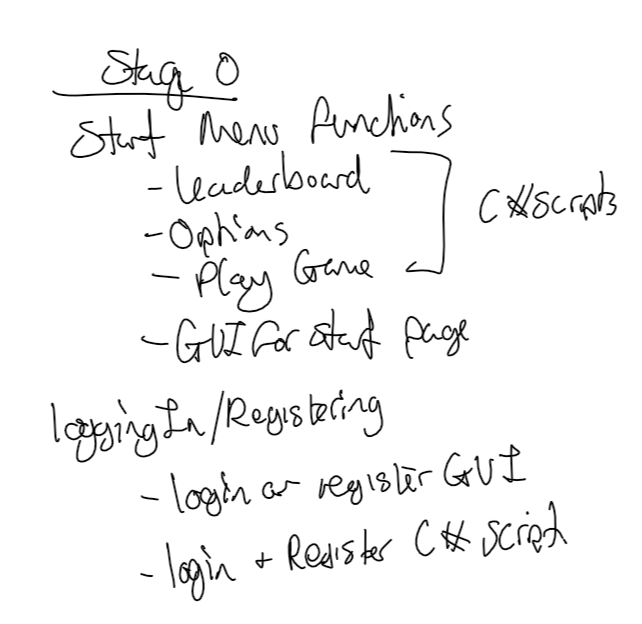 Stage 0
Start Menu functions
- Leaderboard
- Options
- Play Game
C# Scripts
- GUI for start page
Logging In/Registering
- login or register GUI
- login + Register C# Script